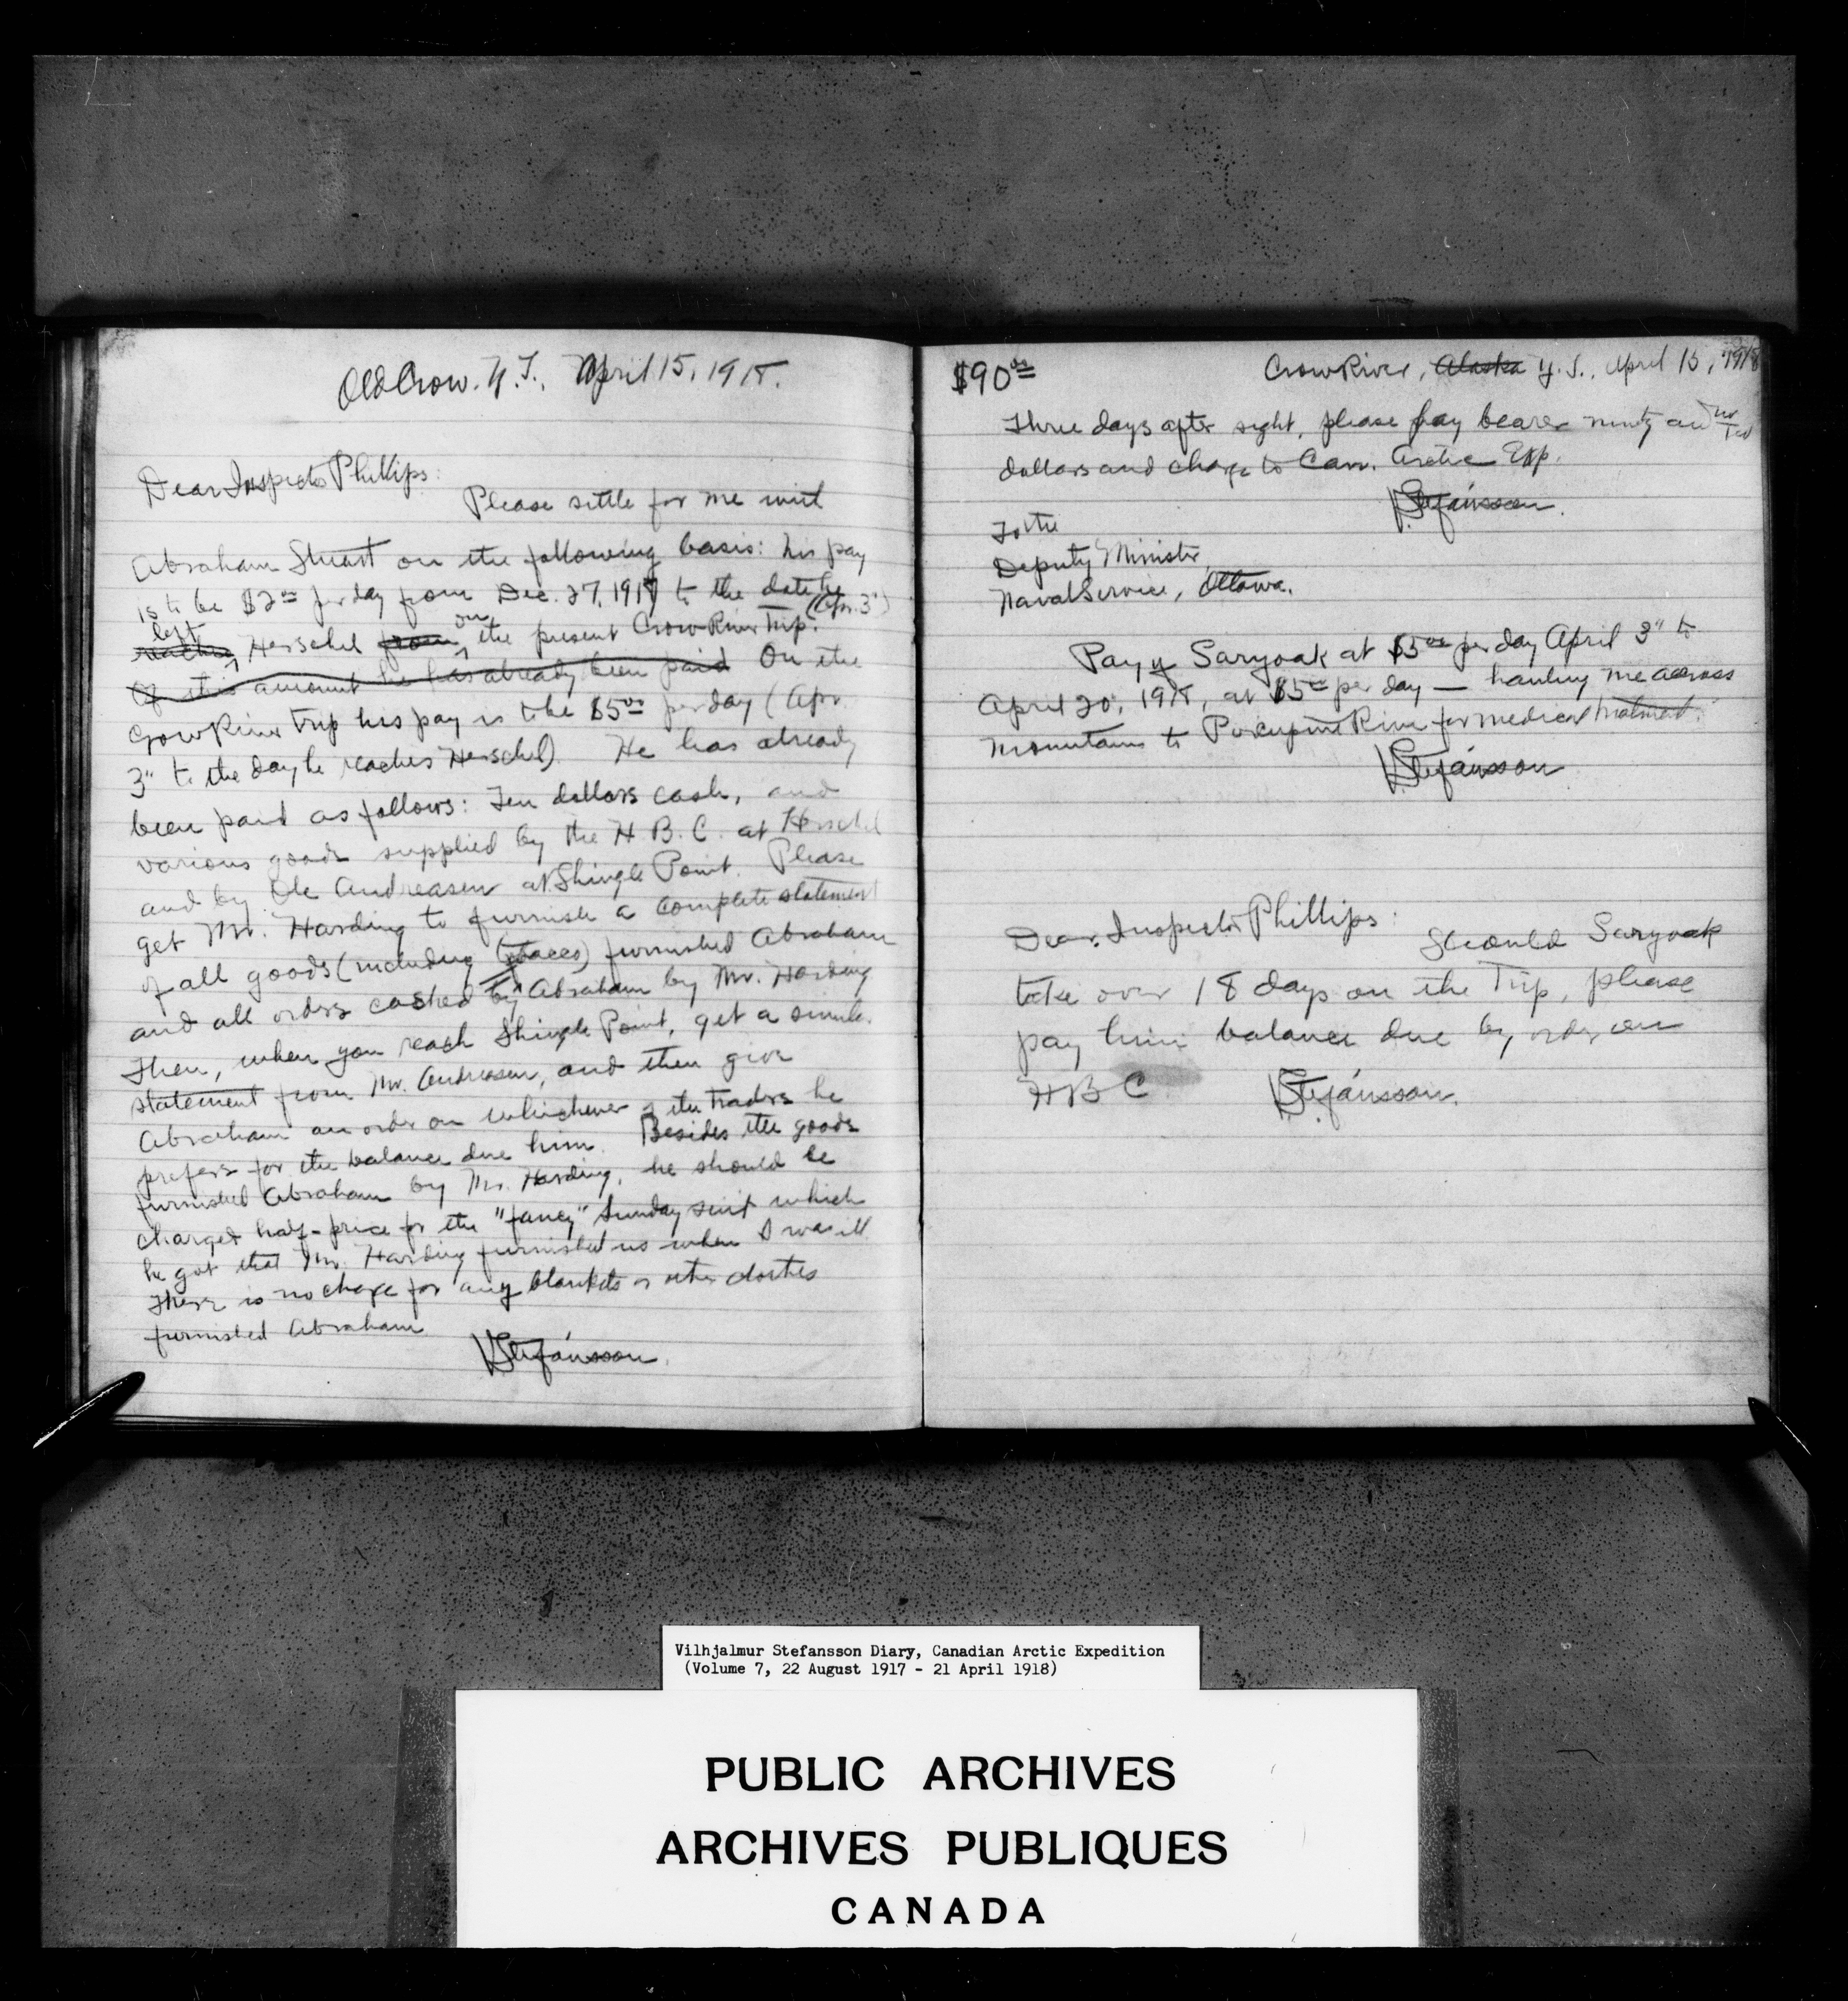 Old Crow. Y.T., April 15, 1918.
Dear Inspector Phillips:
Please settle for me with
Abraham Stuart on the following basis: his pay
is to be $2.00 per day from Dec. 27, 1917 to the date he
left (Apr. 3")
reaches Herschel from on the present Crow River Trip.
Of this amount he has already been paid On the
Crow River trip his pay is to be $5.00 per day (Apr.
3" to the day he reaches Herschel). He has already
been paid as follows: Ten dollars cash, and
various goods supplied by the H.B.C. at Herschel
and by Ole Andreasen at Shingle Point. Please
get Mr. Harding to furnish a complete statement
of all goods (including tobacco) furnished Abraham
and all orders cashed by Abraham by Mr. Harding
Then, when you reach Shingle Point, get a similar
statement from Mr. Andreasen, and then give
Abraham an order on whichever of the traders he
prefers for the balance due him. Besides the goods
furnished Abraham by Mr. Harding, he should be
charged half-price for the "fancy" Sunday suit which
he got that Mr. Harding furnished us when I was ill.
There is no charge for any blankets or other clothes
furnished Abraham
V Stefánsson.
$90.00 Crow River, Alaska Y.T., April 15, 1918
Three days after sight, please pay bearer ninety and no/100
dollars and charge to Can. Arctic Exp.
V Stefánsson.
To the
Deputy Minister,
Naval Service, Ottawa.
Pay of Saryoak at $5.00 per day April 3" to
April 20, 1918, at $5.00 per day — hauling me across
mountains to Porcupine River for medical treatment.
V Stefánsson
Dear Inspector Phillips:
Should Saryoak
take over 18 days on the Trip, please
pay him balance due by order on
HBC V Stefánsson.
Vilhjalmur Stefansson Diary, Canadian Arctic Expedition
(Volume 7, 22 August 1917 - 21 April 1918)
PUBLIC ARCHIVES
ARCHIVES PUBLIQUES
CANADA